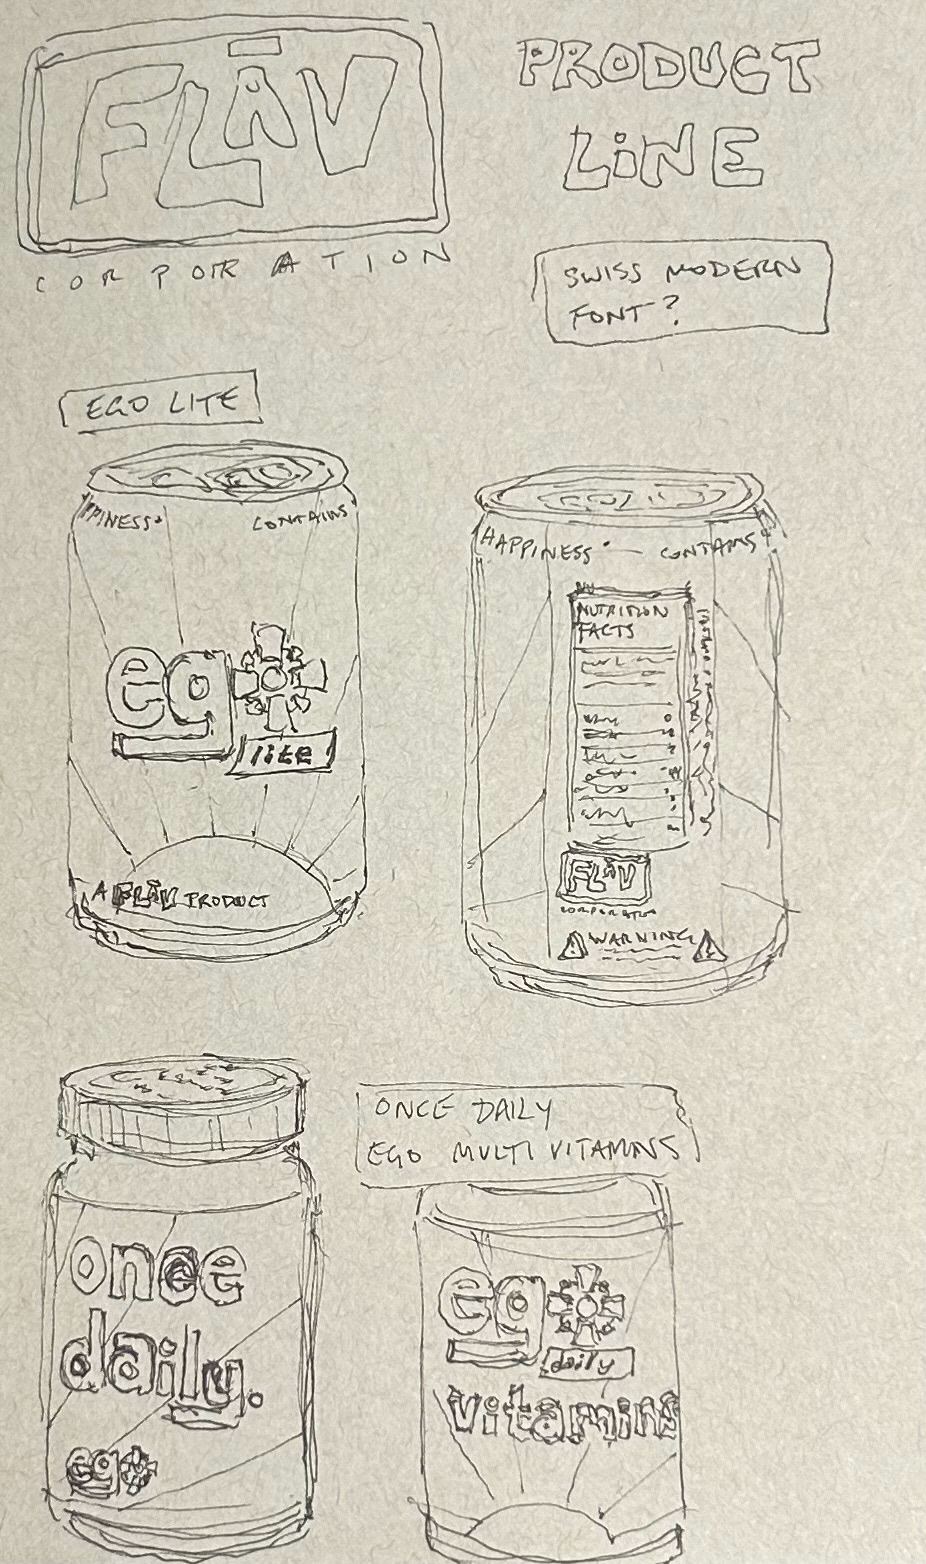 FLĀV
CORPORATION
PRODUCT
LiNE
SWISS MODERN
FONT?
EGO LITE
PPINESS*
CONTAINS*
eg
lite
A FLĀV PRODUCT
HAPPINESS* — CONTAINS*
NUTRITION
FACTS
FLĀV
CORPORATION
! WARNING !
once
daily.
eg
ONCE DAILY
EGO MULTI VITAMINS
eg
daily
vitamins